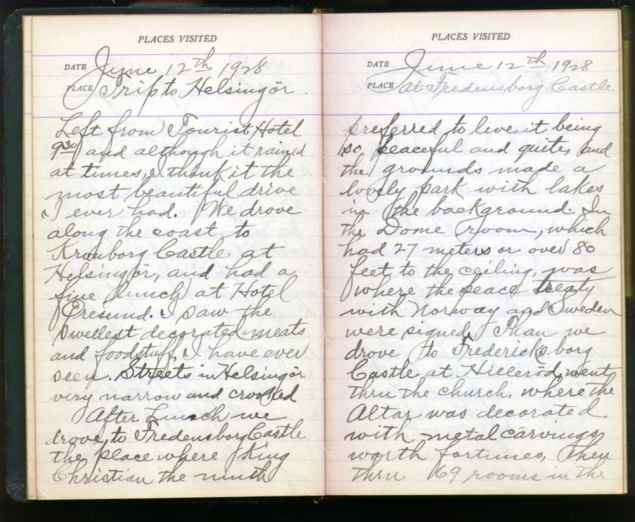 PLACES VISITED
DATE June 12th 1928
PLACE Trip to Helsingör
Left from Tourist Hotel
9:30 and although it rained
at times, I think it the
most beautiful drive
I ever had. We drove
along the coast to
Kronborg Castle at
Helsingör, and had a
fine lunch at Hotel
Öresund. I saw the
swellest decorated meats
and foodstuff I have ever
seen. Streets in Helsingör
very narrow and crooked
After Lunch we
drove to Fredensborg Castle
the place where King
Christian the ninth
PLACES VISITED
DATE June 12th 1928
PLACE At Fredensborg Castle
preferred to live it being
so peaceful and quite, and
the grounds made a
lovely park with lakes
in the background. In
the Dome room, which
had 27 meters or over 80
feet to the ceiling, was
where the peace treaty
with Norway and Sweden
were signed. Than we
drove to Fredericksborg
Castle at Hilleröd, went
thru the church where the
Altar was decorated
with metal carvings
worth fortunes, then
thru 69 rooms in the